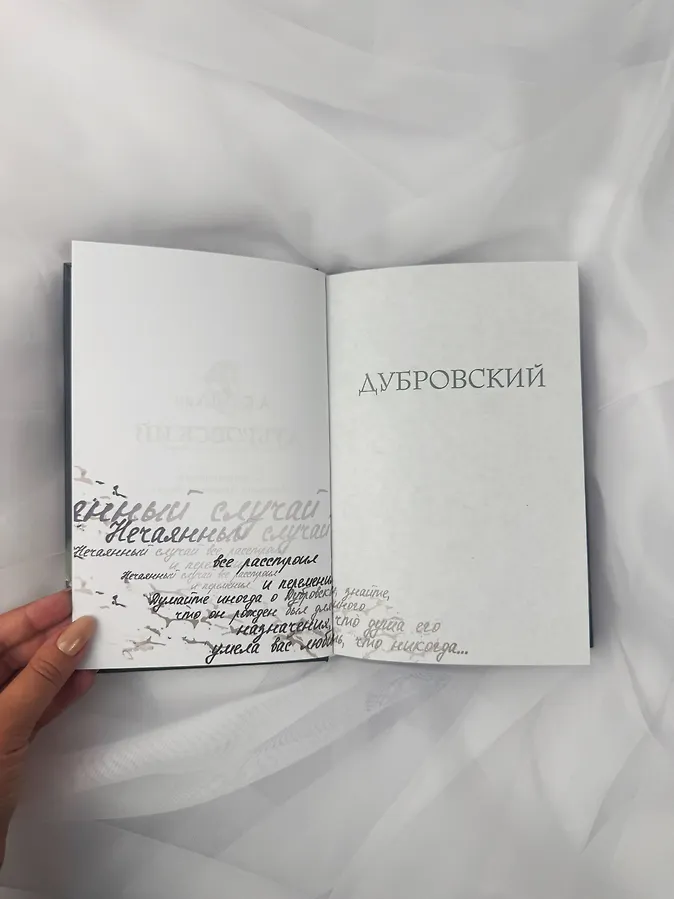 ДУБРОВСКИЙ
енный случай
Нечаянный случай
Нечаянный случай все расстроил
все расстроил
Нечаянный случай все расстроил
и переменил
и переменил
Думайте иногда о Дубровском, знайте,
что он рожден был для иного
назначения, что душа его
умела вас любить, что никогда...